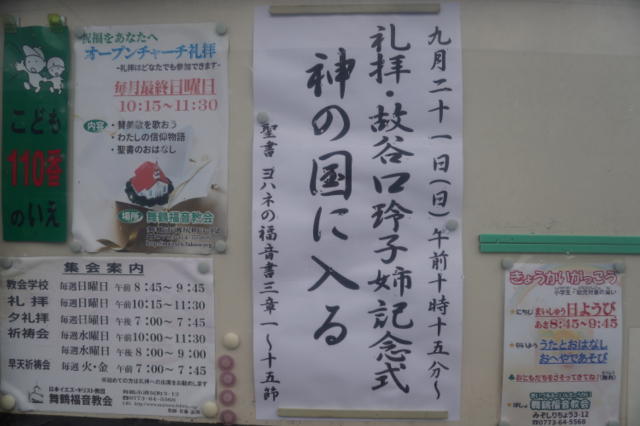 こども
110番
のいえ
祝福をあなたへ
オープンチャーチ礼拝
-礼拝はどなたでも参加できます-
毎月最終日曜日
10:15~11:30
内容
・賛美歌を歌おう
・わたしの信仰物語
・聖書のおはなし
場所
舞鶴福音教会
九月二十一日(日)午前十時十五分~
礼拝・故谷口玲子姉記念式
神の国に入る
聖書 ヨハネの福音書三章一~十五節
集会案内
教会学校 毎週日曜日 午前 8:45~9:45
礼拝 毎週日曜日 午前10:15~11:30
夕礼拝 毎週日曜日 午後 7:00~7:45
祈祷会 毎週水曜日 午前10:00~11:30
毎週水曜日 午後 8:00~9:00
早天祈祷会 毎週火・金 午前 7:00~7:30
日本イエス・キリスト教団
舞鶴福音教会
0773-64-5568
きょうかいがっこう
まいしゅう 日ようび
あさ8:45~9:45
うたとおはなし
おへやであそび
おともだちをさそってきてね!
舞鶴福音教会
みぞしりちょう3-12
0773-64-5568